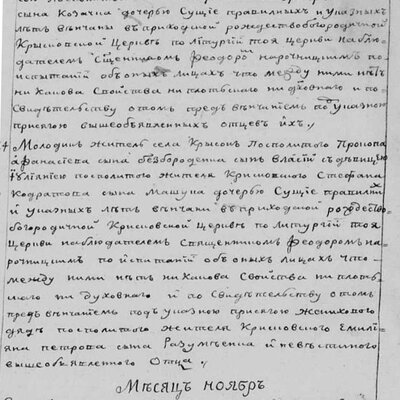 сына Козачка дочерью Сущіе правилныхъ и указныхъ
лѣтъ вѣнчаны въ приходской рождествобогородичной
Крысовской Церквѣ по литургіи тоя церкви наблю-
дателемъ Священникомъ Феодоромъ нарочницкимъ по
испытаніи объ оныхъ лицахъ что между ними нѣтъ
ни какова Свойства ни плотскаго ни духовнаго и по
Свидѣтельству о томъ предъ вѣнчаніемъ подъ указною
присягою вышеобъявленныхъ отцевъ ихъ
Молодикъ житель села Крысокъ Посполитого Прокопа
афанасіева сына безбороденка сынъ Власій съ дѣвицею
Іуліаніею посполитого жителя Крисковского Стефана
Кодратова сына Машука дочерью Сущіе правилнихъ
и указныхъ лѣтъ вѣнчани въ приходской рождество
богородичной Крисковской Церквѣ по литургіи тоя
Церкви наблюдателемъ Священникомъ Феодоромъ на-
рочницкимъ по испитаніи объ онихъ лицахъ что
между ними нѣтъ ни какова Свойства ни плотъ-
ского ни духовнаго и по Свидѣтельству о томъ
предъ вѣнчаніемъ подъ указною присягою женихового
дядъ посполитого жителя Крисковского Емилі-
яна петрова сына Разумѣенка и невѣстиного
вышеобъявленного Отца
Мѣсяцъ ноябръ